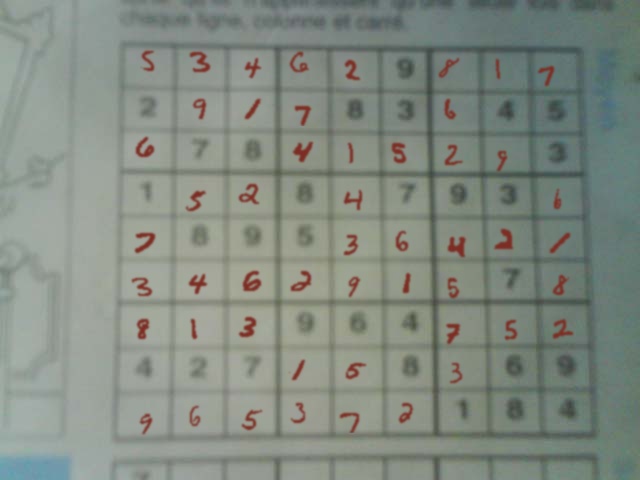 n'apparaissent qu'une seule fois dans
chaque ligne, colonne et carré.
5 3 4 6 2 9 8 1 7
2 9 1 7 8 3 6 4 5
6 7 8 4 1 5 2 9 3
1 5 2 8 4 7 9 3 6
7 8 9 5 3 6 4 2 1
3 4 6 2 9 1 5 7 8
8 1 3 9 6 4 7 5 2
4 2 7 1 5 8 3 6 9
9 6 5 3 7 2 1 8 4
Moyen